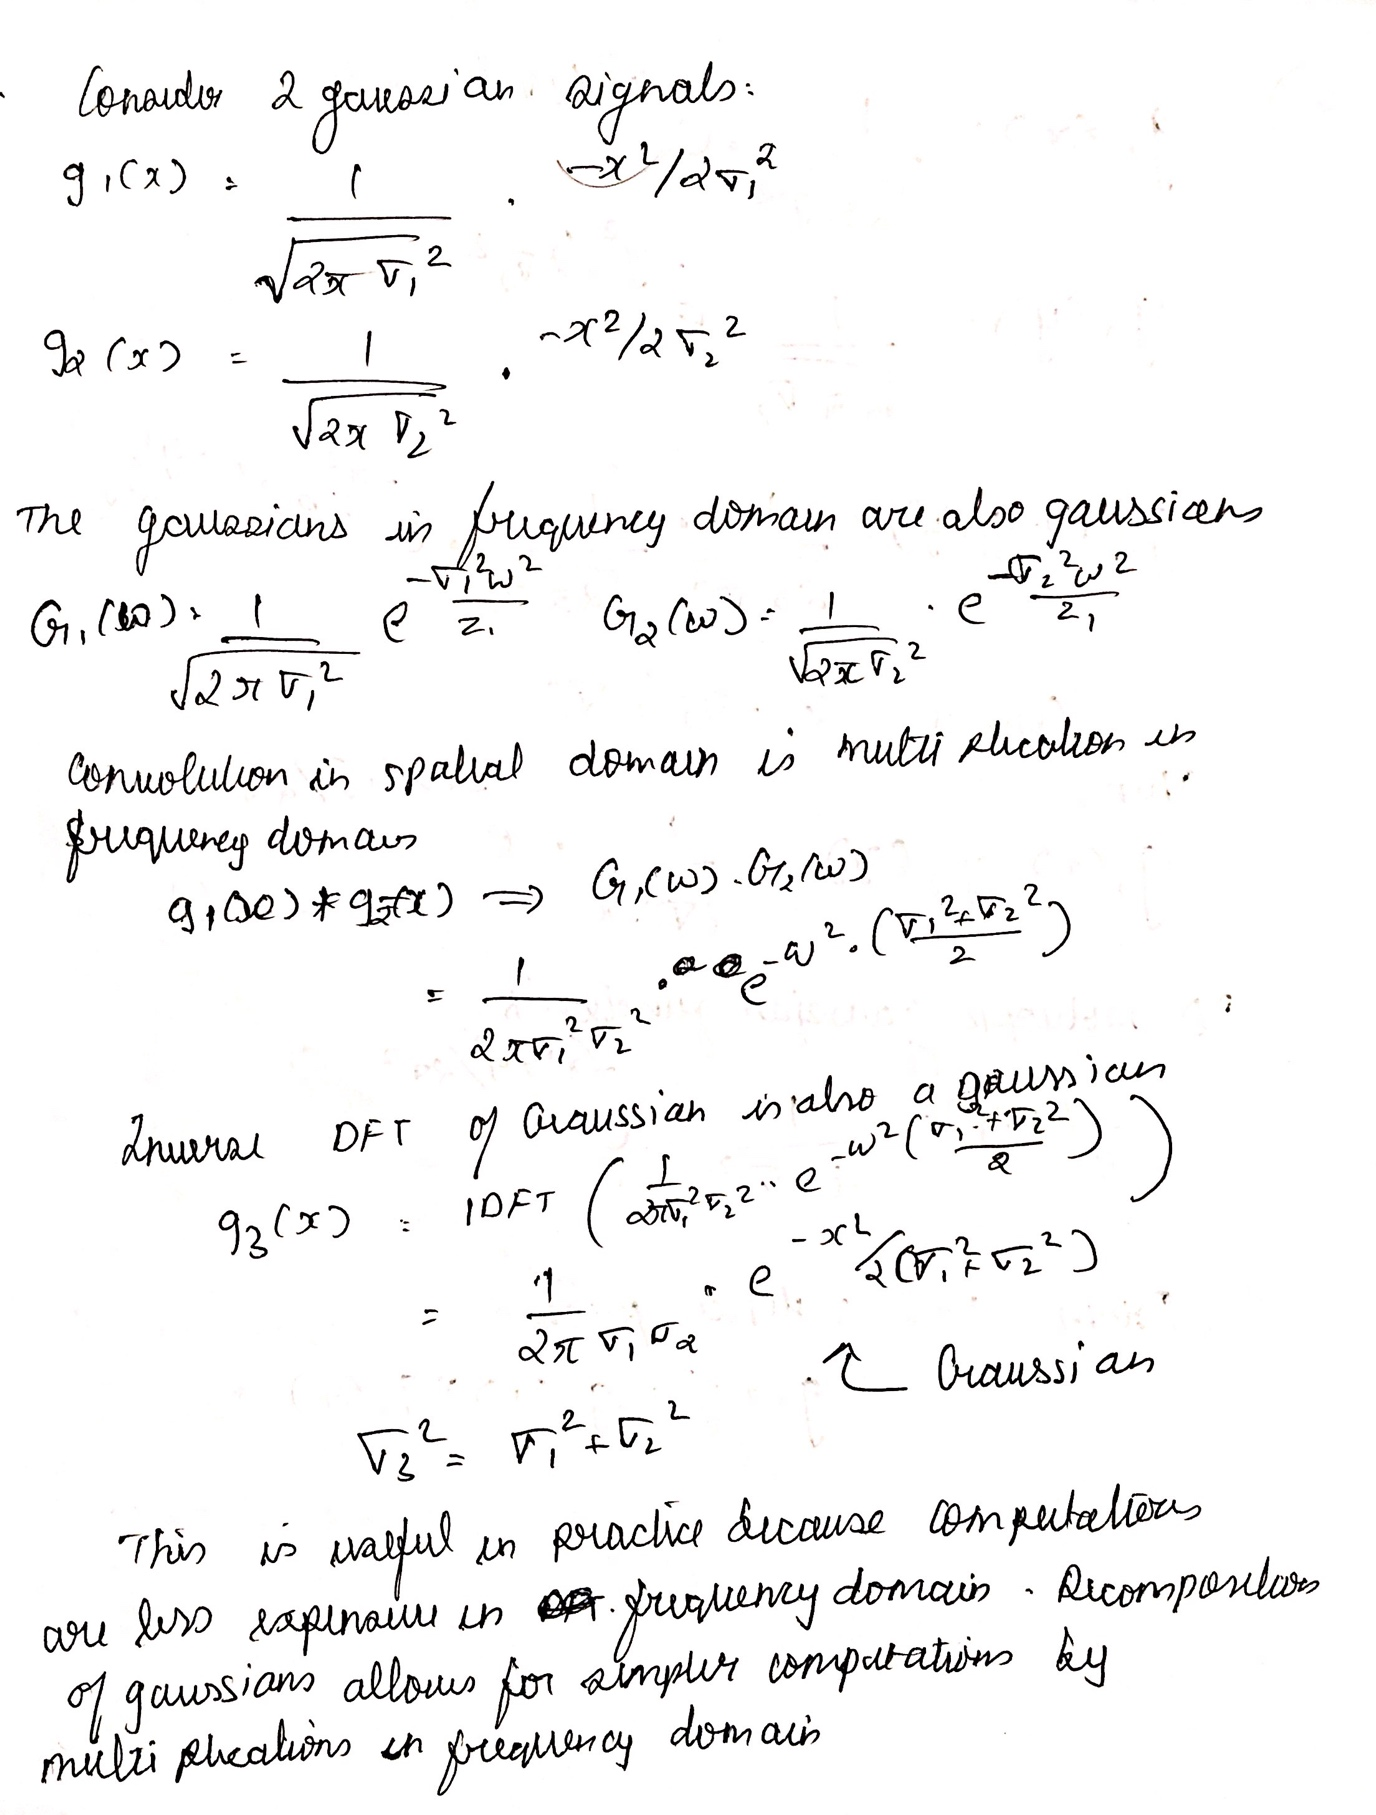 Consider 2 gaussian signals:
g₁(x) = 1/√(2π σ₁²) . -x²/2σ₁²
g₂(x) = 1/√(2π σ₂²) . -x²/2σ₂²
The gaussians in frequency domain are also gaussians
G₁(ω) = 1/√(2π σ₁²) e^(-σ₁²ω²/2) G₂(ω) = 1/√(2π σ₂²) . e^(-σ₂²ω²/2)
Convolution in spatial domain is multiplication in
frequency domain
g₁(x) * g₂(x) ⟹ G₁(ω) . G₂(ω)
= 1/(2π σ₁² σ₂²) . e^(-ω² . ((σ₁² + σ₂²)/2))
Inverse DFT of Gaussian is also a gaussian
g₃(x) = IDFT ( 1/(2π σ₁² σ₂²) . e^(-ω² ((σ₁² + σ₂²)/2)) )
= 1/(2π σ₁ σ₂) . e^(-x²/2(σ₁² + σ₂²))
↑ Gaussian
σ₃² = σ₁² + σ₂²
This is useful in practice because computations
are less expensive in frequency domain. Decomposition
of gaussians allows for simpler computations by
multiplications in frequency domain